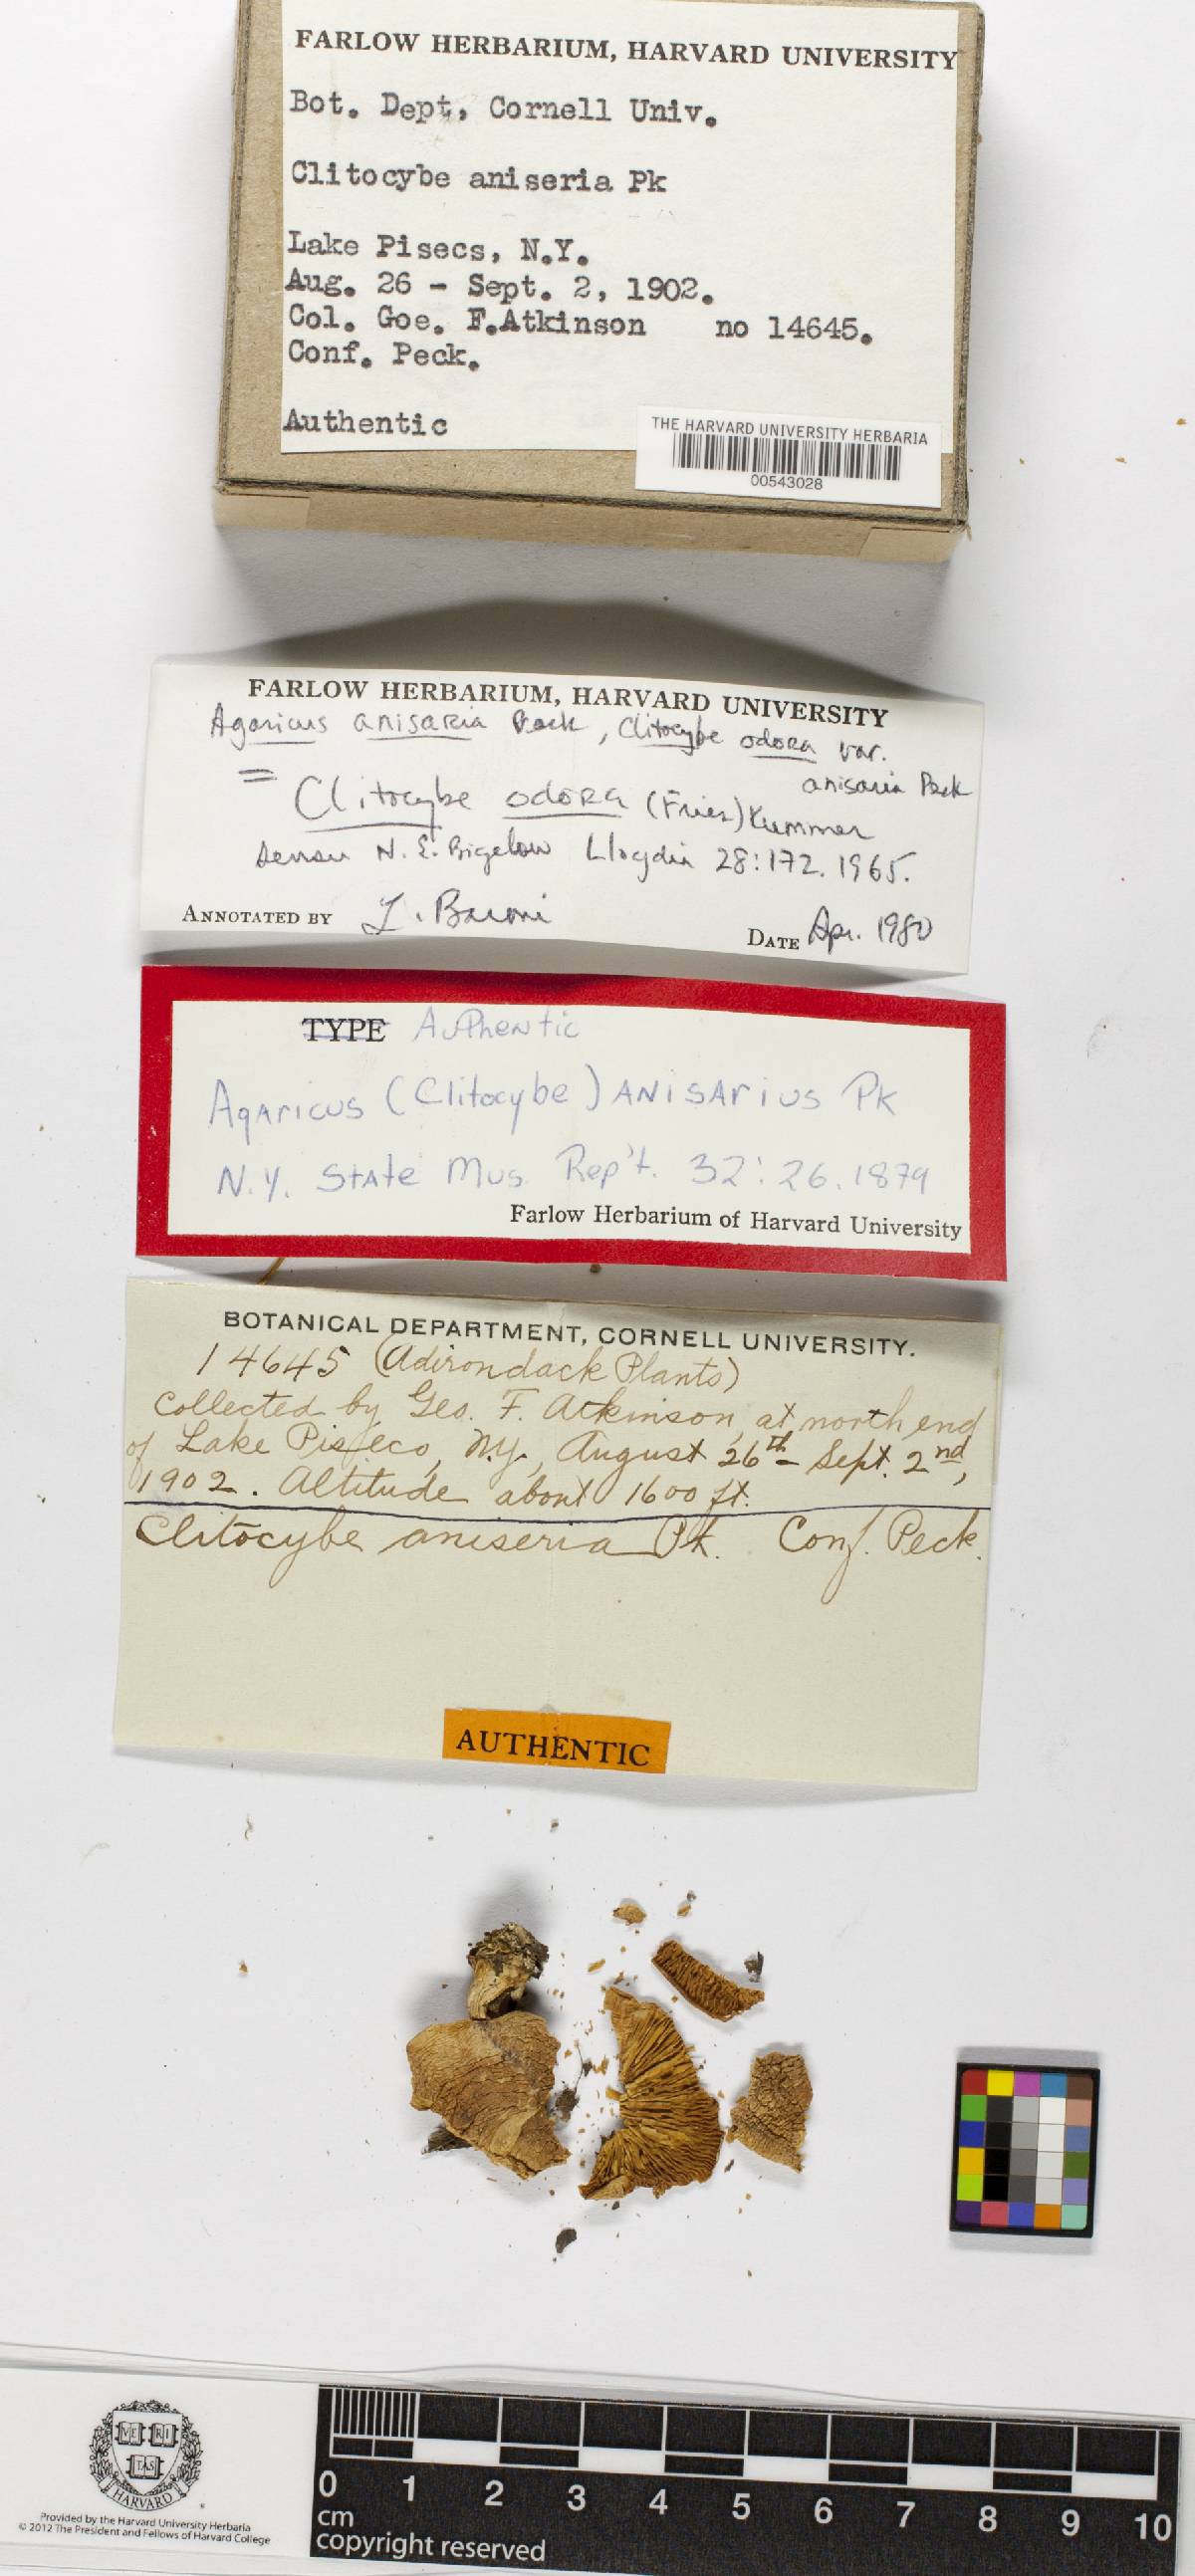 FARLOW HERBARIUM, HARVARD UNIVERSITY
Bot. Dept, Cornell Univ.
Clitocybe aniseria Pk
Lake Pisecs, N.Y.
Aug. 26 - Sept. 2, 1902.
Col. Goe. F.Atkinson no 14645.
Conf. Peck.
Authentic
THE HARVARD UNIVERSITY HERBARIA
00543028
FARLOW HERBARIUM, HARVARD UNIVERSITY
Agaricus anisaria Peck, Clitocybe odora var.
anisaria Peck
= Clitocybe odora (Fries) Kummer
sensu H. E. Bigelow Lloydia 28:172. 1965.
ANNOTATED BY T. Baroni
DATE Apr. 1980
TYPE Authentic
Agaricus (Clitocybe) anisarius Pk
N.Y. State Mus. Rep't. 32:26.1879
Farlow Herbarium of Harvard University
BOTANICAL DEPARTMENT, CORNELL UNIVERSITY.
14645 (Adirondack Plants)
Collected by Geo. F. Atkinson, at north end
of Lake Piseco, N.Y., August 26th - Sept. 2nd,
1902. Altitude about 1600 ft.
Clitocybe aniseria Pk. Conf. Peck.
AUTHENTIC
VE RI
TAS
HARVARD
Provided by the Harvard University Herbaria
© 2012 The President and Fellows of Harvard College
0 1 2 3 4 5 6 7 8 9 10
cm
copyright reserved